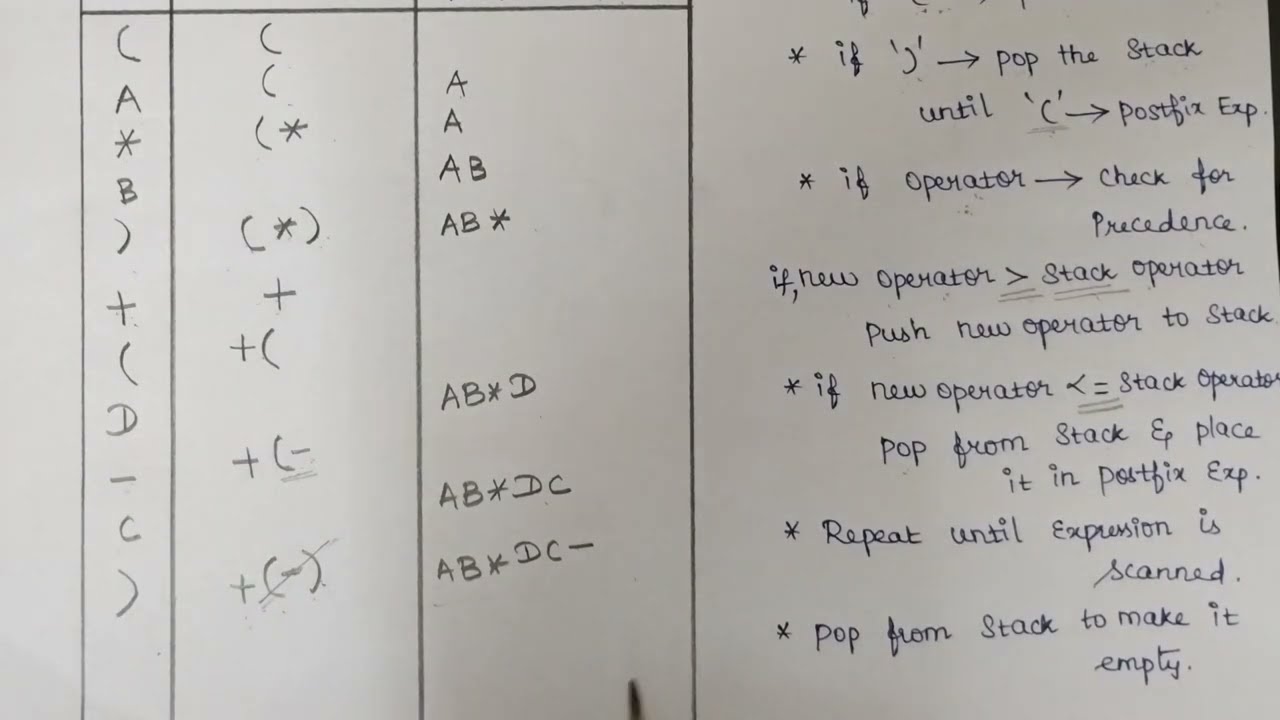 ( (
( A
A
* ( * A
B AB
) ( * ) AB*
+ +
( +(
D AB*D
- +(-
C AB*DC
) +(-) AB*DC-
* if ')' → pop the Stack
until '(' → postfix Exp.
* if operator → check for
Precedence.
if, new operator > Stack operator
push new operator to Stack
* if new operator <= Stack Operator
pop from Stack & place
it in postfix Exp.
* Repeat until Expression is
scanned.
* pop from Stack to make it
empty.